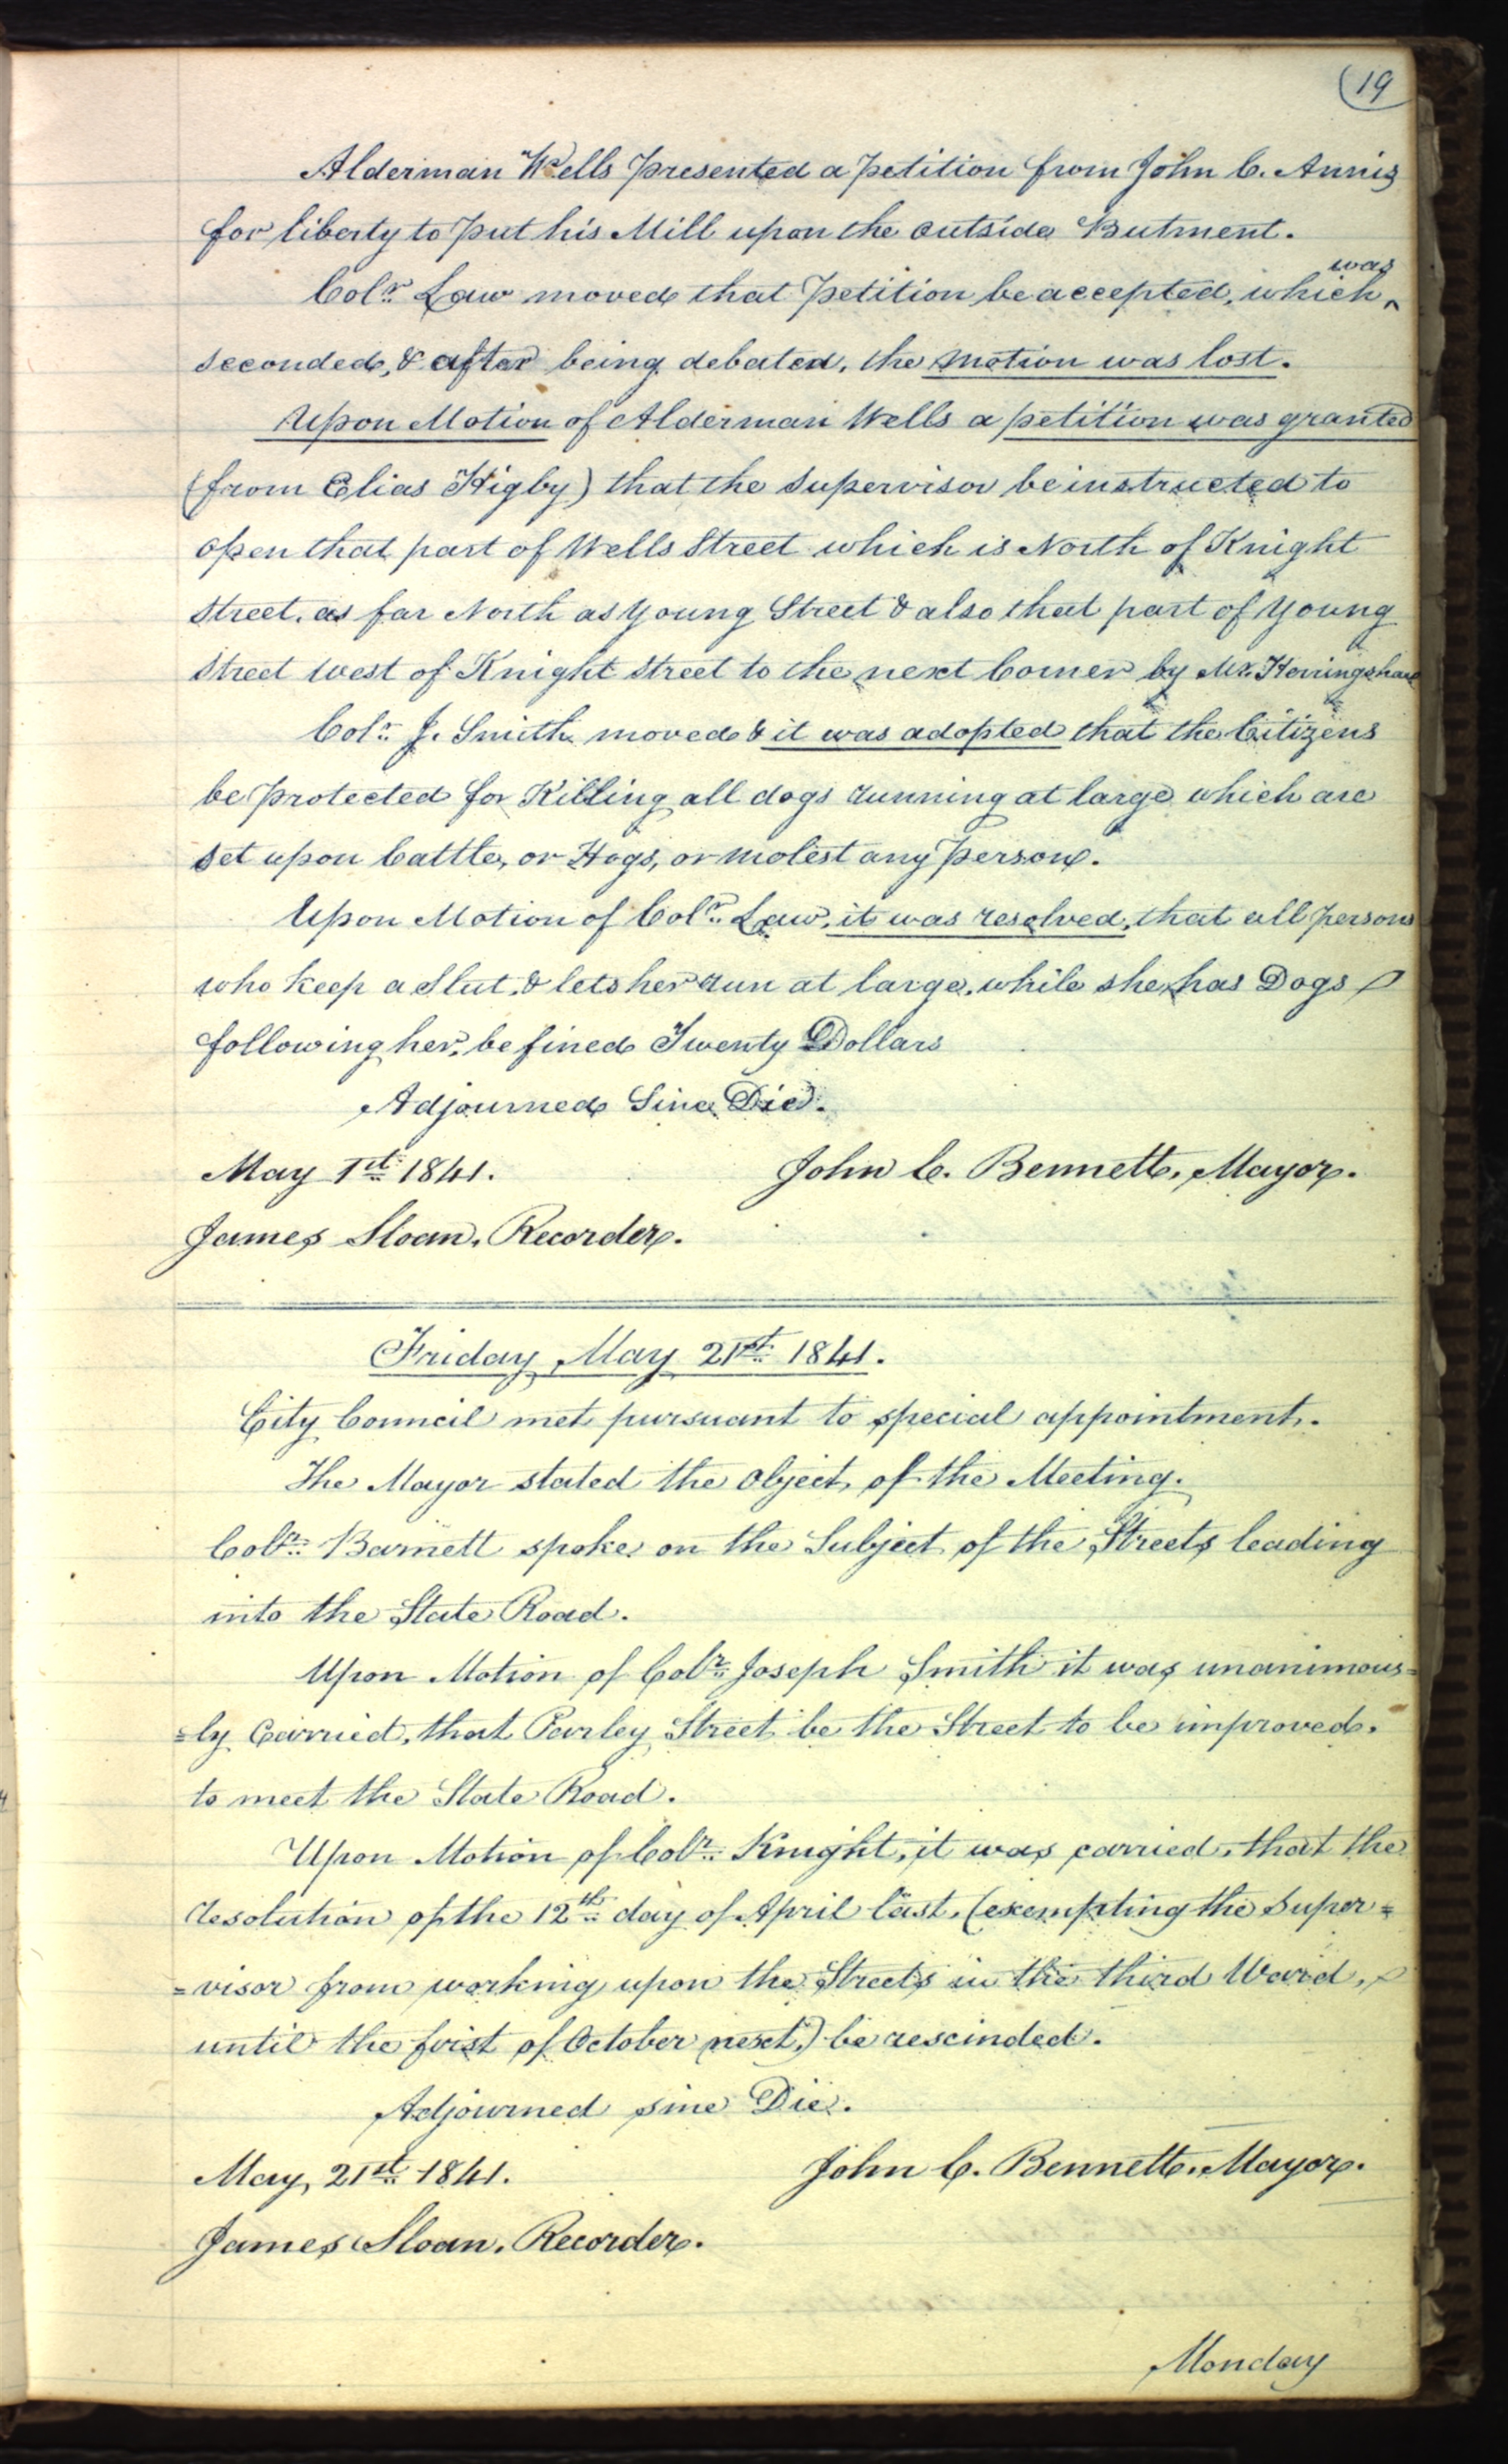 19
Alderman Wells presented a petition from John C. Annis
for liberty to put his Mill upon the outside Butment.
was
Colr. Law moved that petition be accepted, which ^
seconded, & after being debated, the motion was lost.
Upon Motion of Alderman Wells a petition was granted
(from Elias Higby) that the Supervisor be instructed to
open that part of Wells Street which is North of Knight
Street, as far North as Young Street & also that part of Young
Street west of Knight Street to the next Corner by Mr.
Colr. J. Smith moved & it was adopted that the Citizens
be protected for Killing all dogs running at large which are
set upon Cattle, or Hogs, or molest any person.
Upon Motion of Colr. Law, it was resolved, that all persons
who keep a Slut, & lets her run at large, while she has Dogs
following her, be fined Twenty Dollars
Adjourned Sine Die.
May 1st. 1841.
John C. Bennett, Mayor.
James Sloan, Recorder.
Friday, May 21st. 1841.
City Council met pursuant to special appointment.
The Mayor stated the Object, of the Meeting.
Colr. Barnett spoke on the Subject of the Streets leading
into the State Road.
Upon Motion of Colr. Joseph Smith it was unanimous=
=ly Carried, that Parley Street be the Street to be improved,
to meet the State Road.
Upon Motion of Colr. Knight, it was carried, that the
resolution of the 12th. day of April last, (exempting the Super=
=visor from working upon the Streets in the third Ward,
until the first of October next,) be rescinded.
Adjourned sine Die.
May, 21st. 1841.
John C. Bennett, Mayor.
James Sloan, Recorder.
Monday